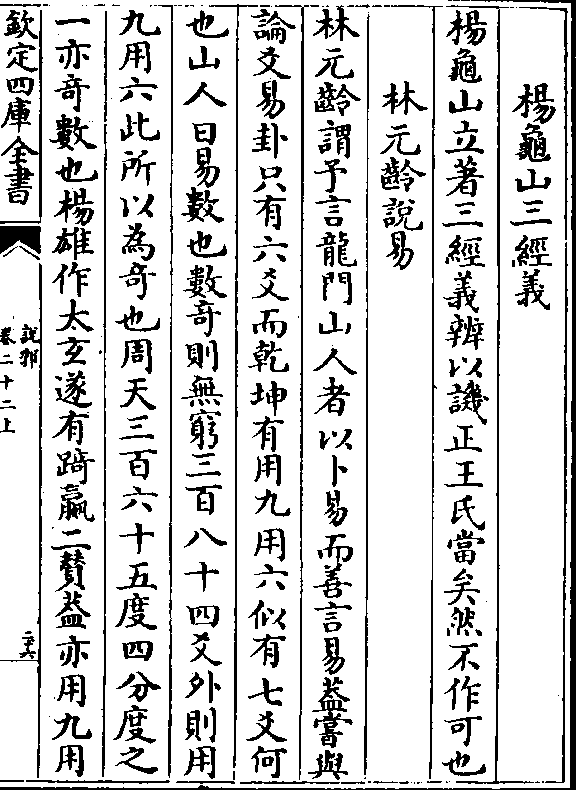 楊龜山三經義
楊龜山立著三經義辨以譏正王氏當矣然不作可也
林元齡說易
林元齡謂予言龍門山人者以卜易而善言易葢嘗與
論爻易卦只有六爻而乾坤有用九用六似有七爻何
也山人曰易數也數竒則無窮三百八十四爻外則用
九用六此所以為竒也周天三百六十五度四分度之
一亦竒數也楊雄作太玄遂有踦羸二贊葢亦用九用
欽定四庫全書
說郛
卷二十二上
二六